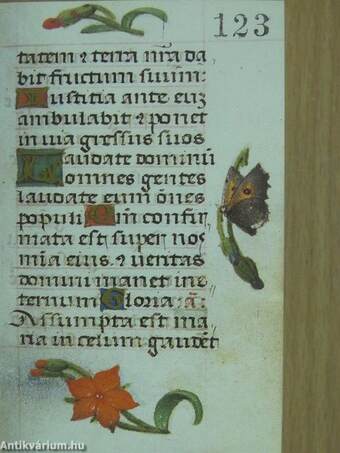 123
tatem ⁊ terra nr̄a da
bit fructum suum:
Iustitia ante eum
ambulabit ⁊ ponet
in via gressus suos
Laudate dominū
omnes gentes
laudate eum ōnes
populi Qm̄ confir
mata est super nos
mīa eius. ⁊ veritas
domini manet ine
ternum Gloria: ā:
Assumpta est ma
ria in celum gaudēt
Antikvárium.hu